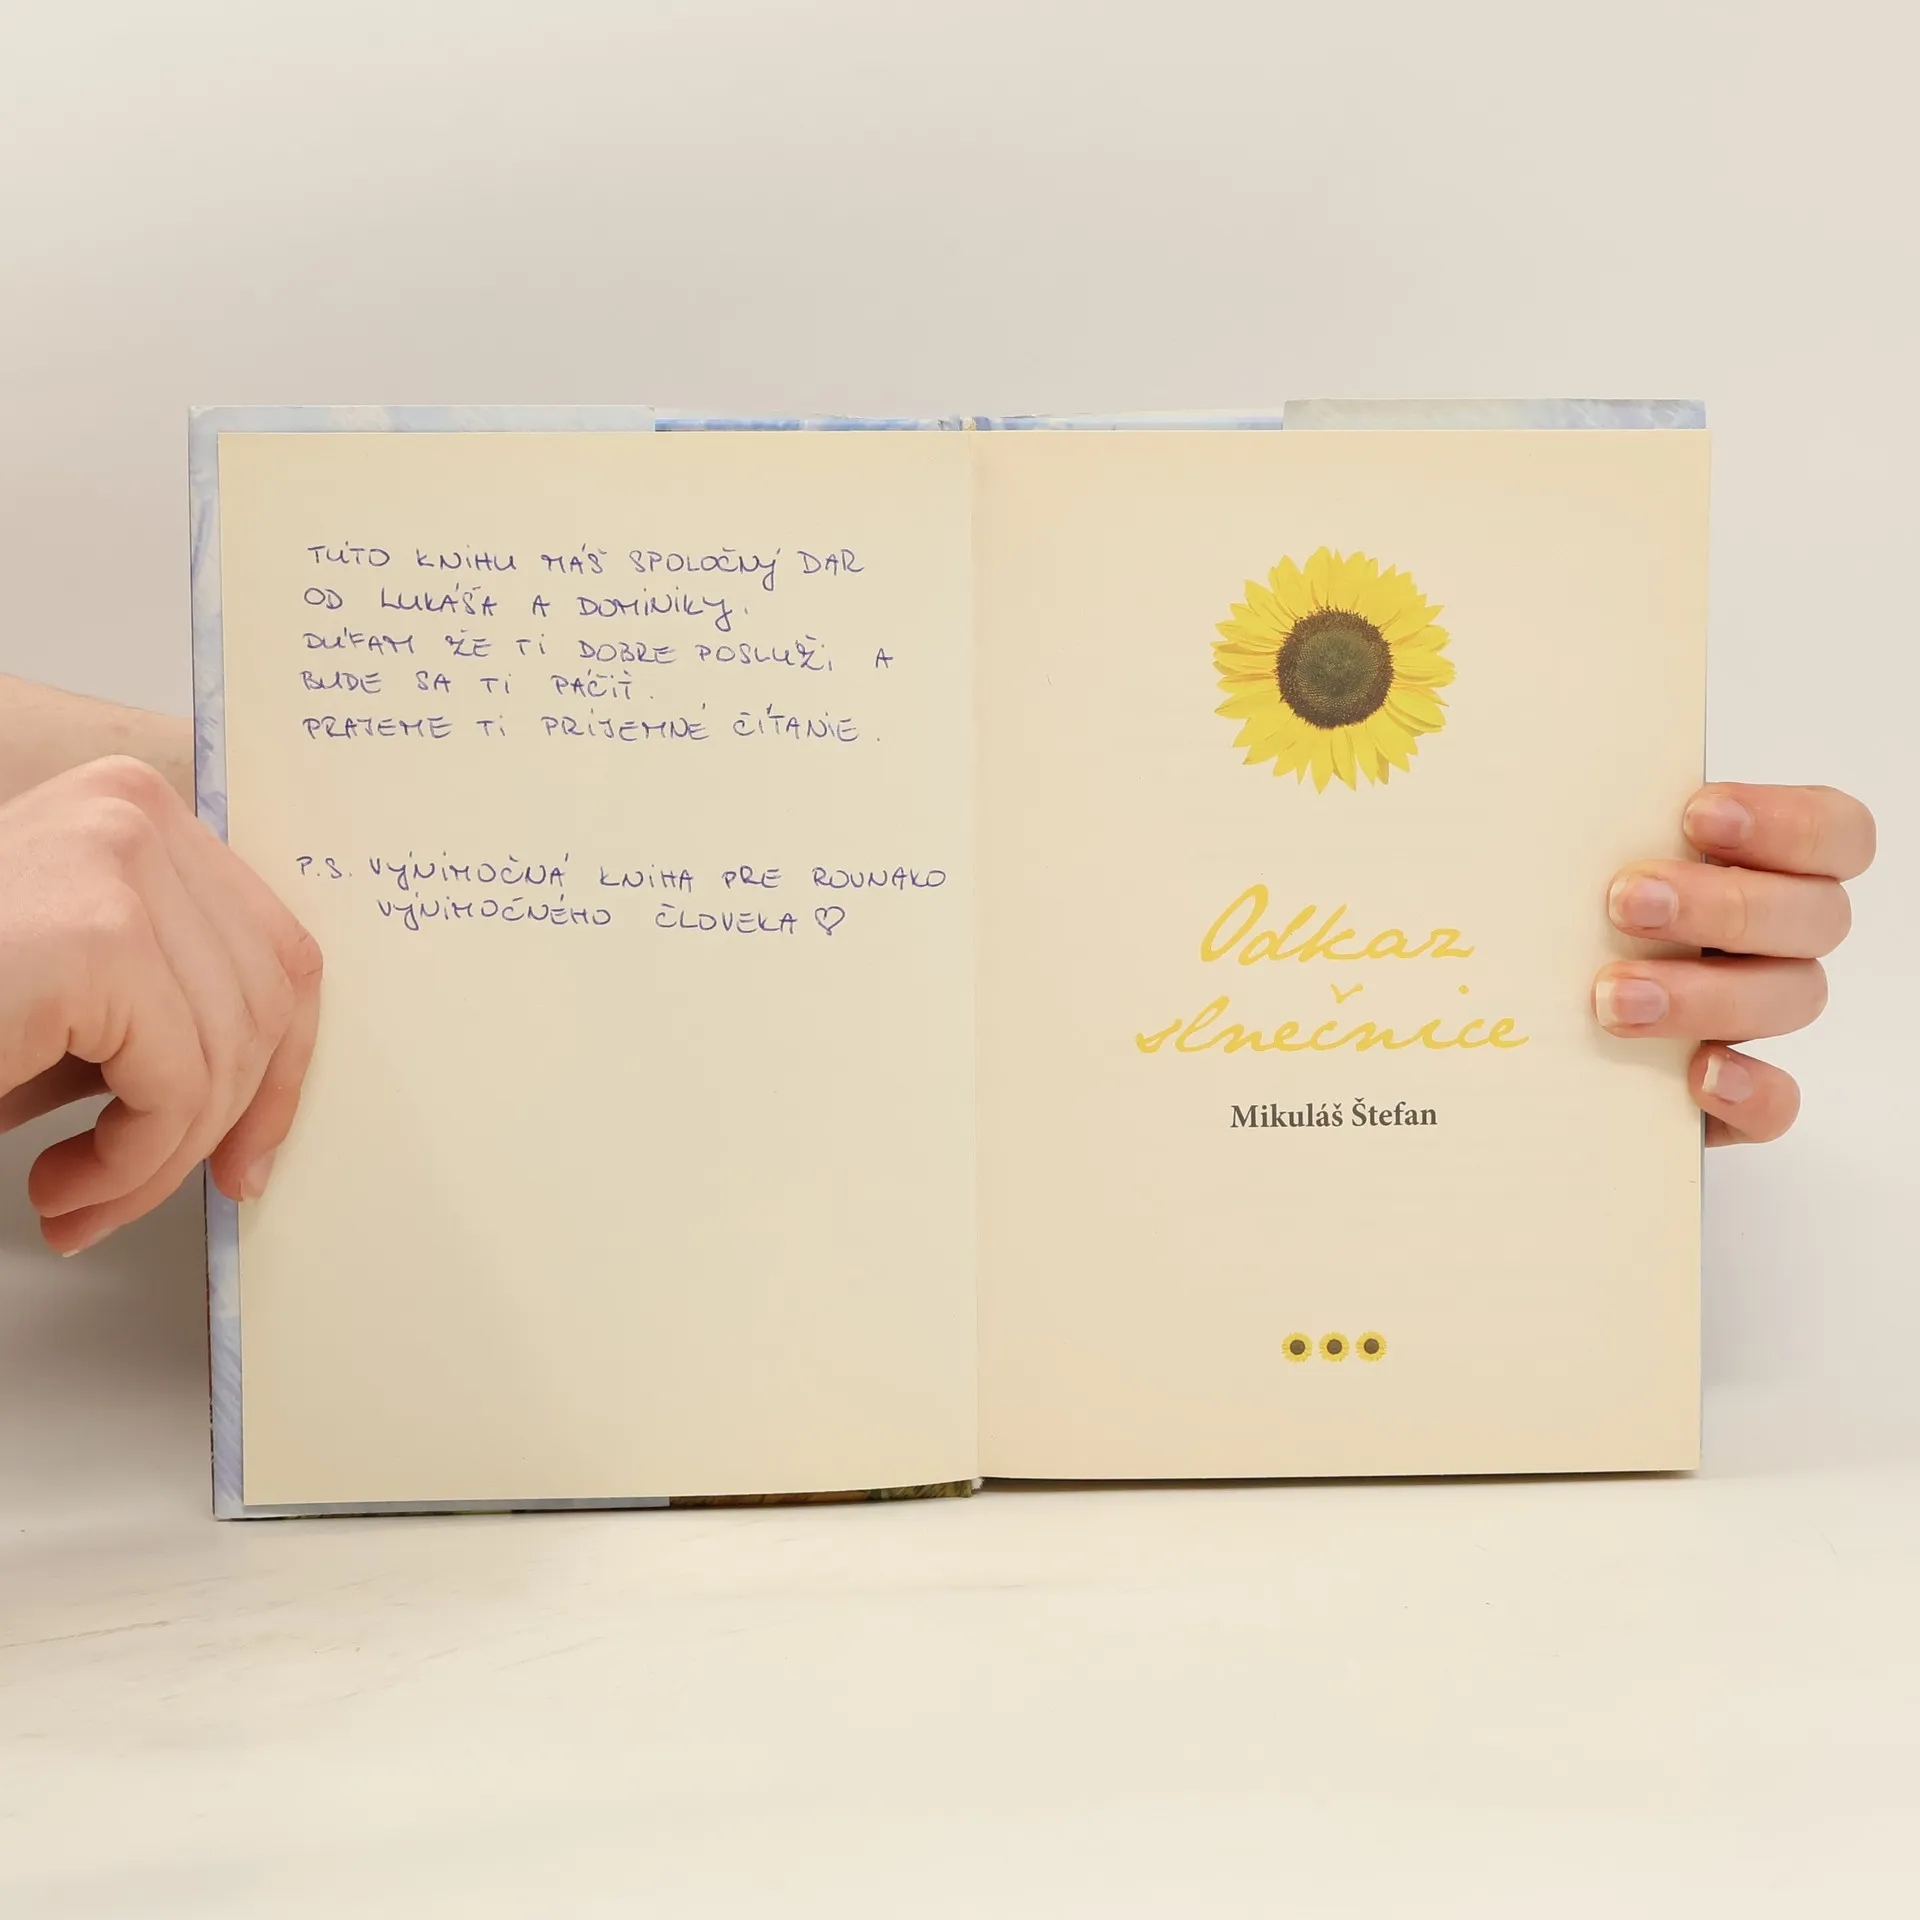 TÚTO KNIHU MÁŠ SPOLOČNÝ DAR
OD LUKÁŠA A DOMINIKY.
DÚFAM ŽE TI DOBRE POSLÚŽI, A
BUDE SA TI PÁČIŤ.
PRAJEME TI PRÍJEMNÉ ČÍTANIE.
P.S. VÝNIMOČNÁ KNIHA PRE ROVNAKO
VÝNIMOČNÉHO ČLOVEKA ♡
Odkaz
slnečnice
Mikuláš Štefan